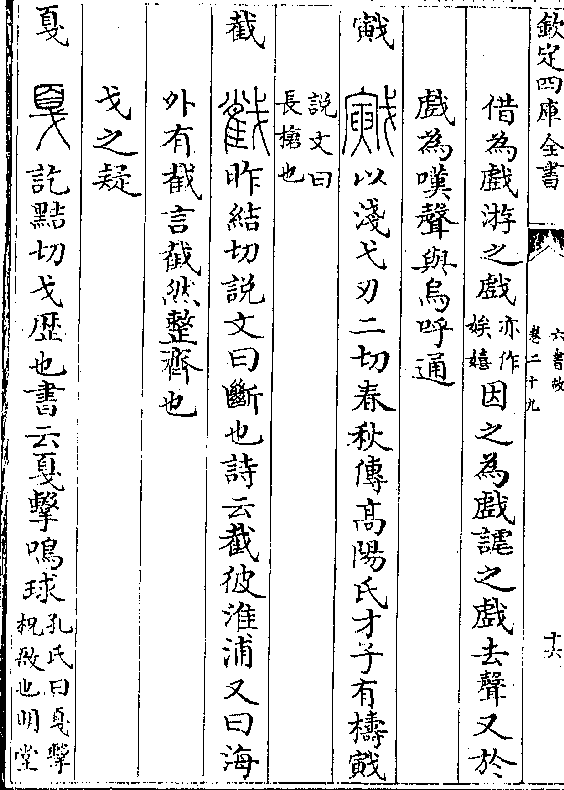 欽定四庫全書
六書故
卷二十九
十六
借為戲游之戲亦作娭嬉因之為戲謔之戲去聲又於
戲為嘆聲與烏呼通
戭 以淺弋刃二切春秋傳髙陽氏才子有檮戭
說文曰長槍也
截 昨結切說文曰斷也詩云截彼淮浦又曰海
外有截言截然整齊也
戈之疑
戛 訖黠切戈歴也書云戛擊鳴球孔氏曰戛擊柷敔也明堂